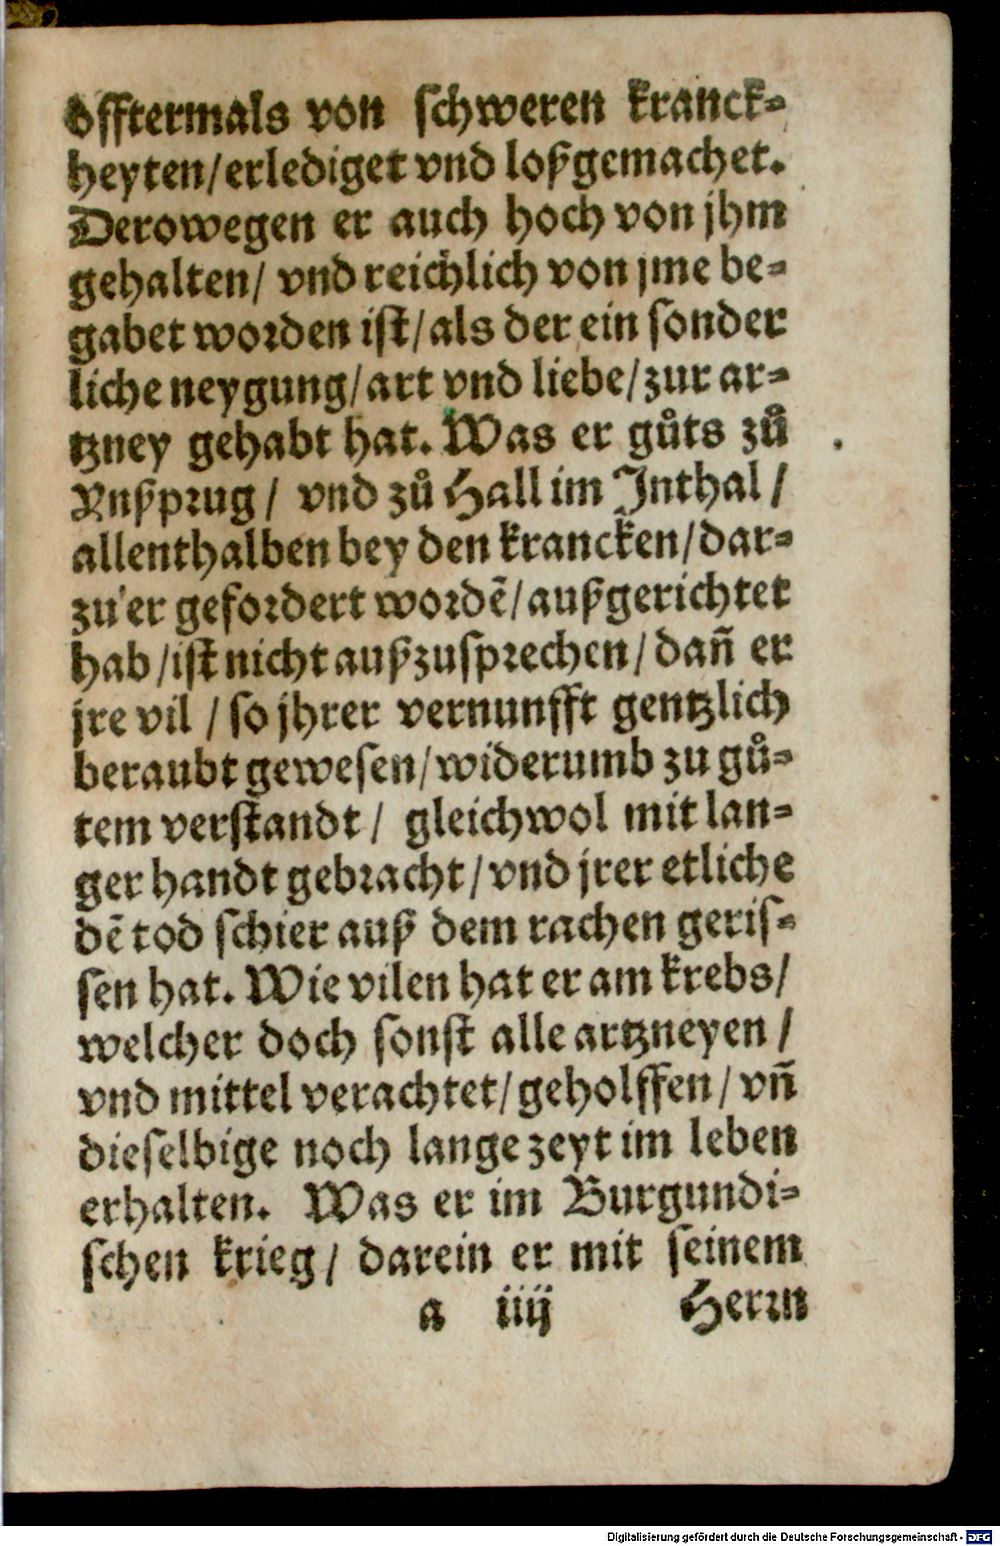 offtermals von schweren kranck-
heyten/erlediget vnd loßgemachet.
Derowegen er auch hoch von jhm
gehalten/ vnd reichlich von jme be-
gabet worden ist/als der ein sonder
liche neygung/art vnd liebe/zur ar-
tzney gehabt hat. Was er gůts zů
Ynßprug/ vnd zů Hall im Jnthal/
allenthalben bey den krancken/dar-
zu er gefordert wordẽ/außgerichtet
hab/ist nicht außzusprechen/dañ er
jre vil/so jhrer vernunfft gentzlich
beraubt gewesen/widerumb zu gů-
tem verstandt/ gleichwol mit lan-
ger handt gebracht/vnd jrer etliche
dẽ tod schier auß dem rachen geris-
sen hat. Wie vilen hat er am krebs/
welcher doch sonst alle artzneyen/
vnd mittel verachtet/geholffen/vñ
dieselbige noch lange zeyt im leben
erhalten. Was er im Burgundi-
schen krieg/ darein er mit seinem
a iiij Herrn
Digitalisierung gefördert durch die Deutsche Forschungsgemeinschaft - DFG